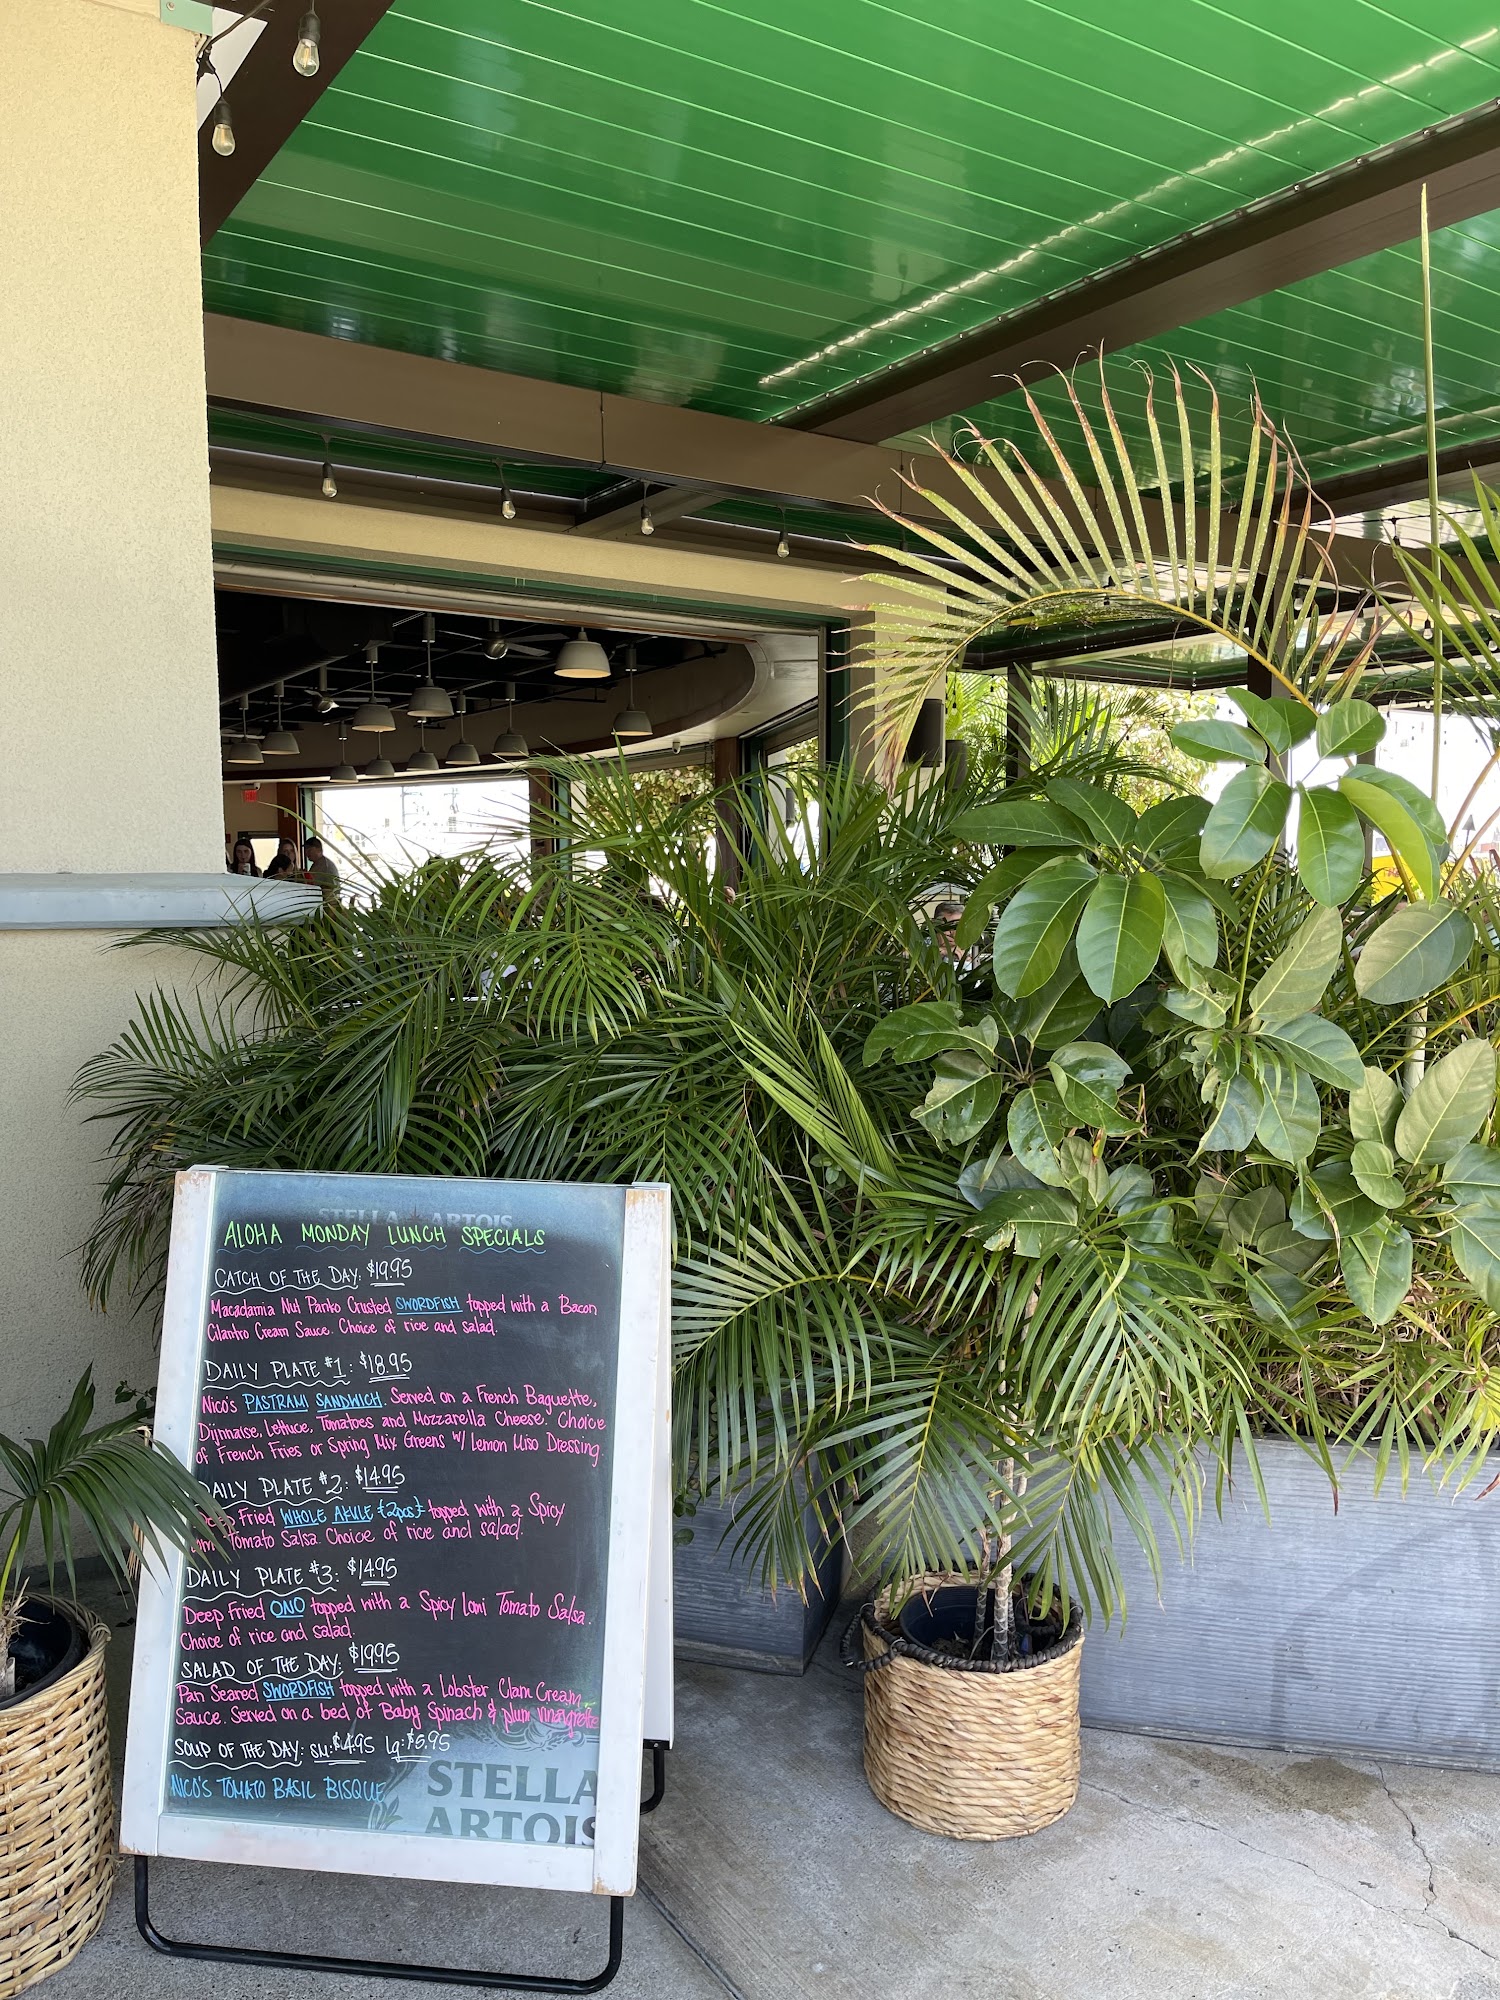 STELLA ARTOIS
ALOHA MONDAY LUNCH SPECIALS
CATCH OF THE DAY: $19.95
Macadamia Nut Panko Crusted SWORDFISH topped with a Bacon
Cilantro Cream Sauce. Choice of rice and salad.
DAILY PLATE #1: $18.95
Nico's PASTRAMI SANDWICH. Served on a French Baguette,
Dijnnaise, Lettuce, Tomatoes and Mozzarella Cheese. Choice
of French Fries or Spring Mix Greens w/ Lemon Miso Dressing.
DAILY PLATE #2: $14.95
Deep Fried WHOLE AKULE {2pcs} topped with a Spicy
Lomi Tomato Salsa. Choice of rice and salad.
DAILY PLATE #3: $14.95
Deep Fried ONO topped with a Spicy Lomi Tomato Salsa.
Choice of rice and salad.
SALAD OF THE DAY: $19.95
Pan Seared SWORDFISH topped with a Lobster Clam Cream
Sauce. Served on a bed of Baby Spinach & plum vinaigrette
SOUP OF THE DAY: SM: $4.95 Lg: $5.95
NICO'S TOMATO BASIL BISQUE
STELLA
ARTOIS